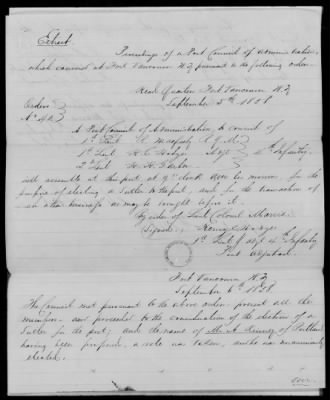 Extract.
Proceedings of a Post Council of Administration
which convened at Fort Vancouver W.T. pursuant to the following order
Head Quarters Fort Vancouver W.T.
September 5th 1858
Orders
No
A Post Council of Administration to consist of
1st Lieut
1st Lieut H. C. Hodges Adjt 4th Infantry
2d Lieut
will assemble at this post at 9 o'clock A.M. tomorrow for the
purpose of electing a Sutler to the post, and for the transaction of
such other business as may be brought before it.
By order of Lieut Colonel Morris
(Signed) Henry C. Hodges
1st Lieut & Adjt 4th Infantry
Post Adjutant
Fort Vancouver W.T.
September 6th 1858
The Council met pursuant to the above order, present all the
members and proceeded to the consideration of the election of a
Sutler for the post; and the name of Mr. of Portland
having been proposed, a vote was taken, and he was unanimously
elected.
over